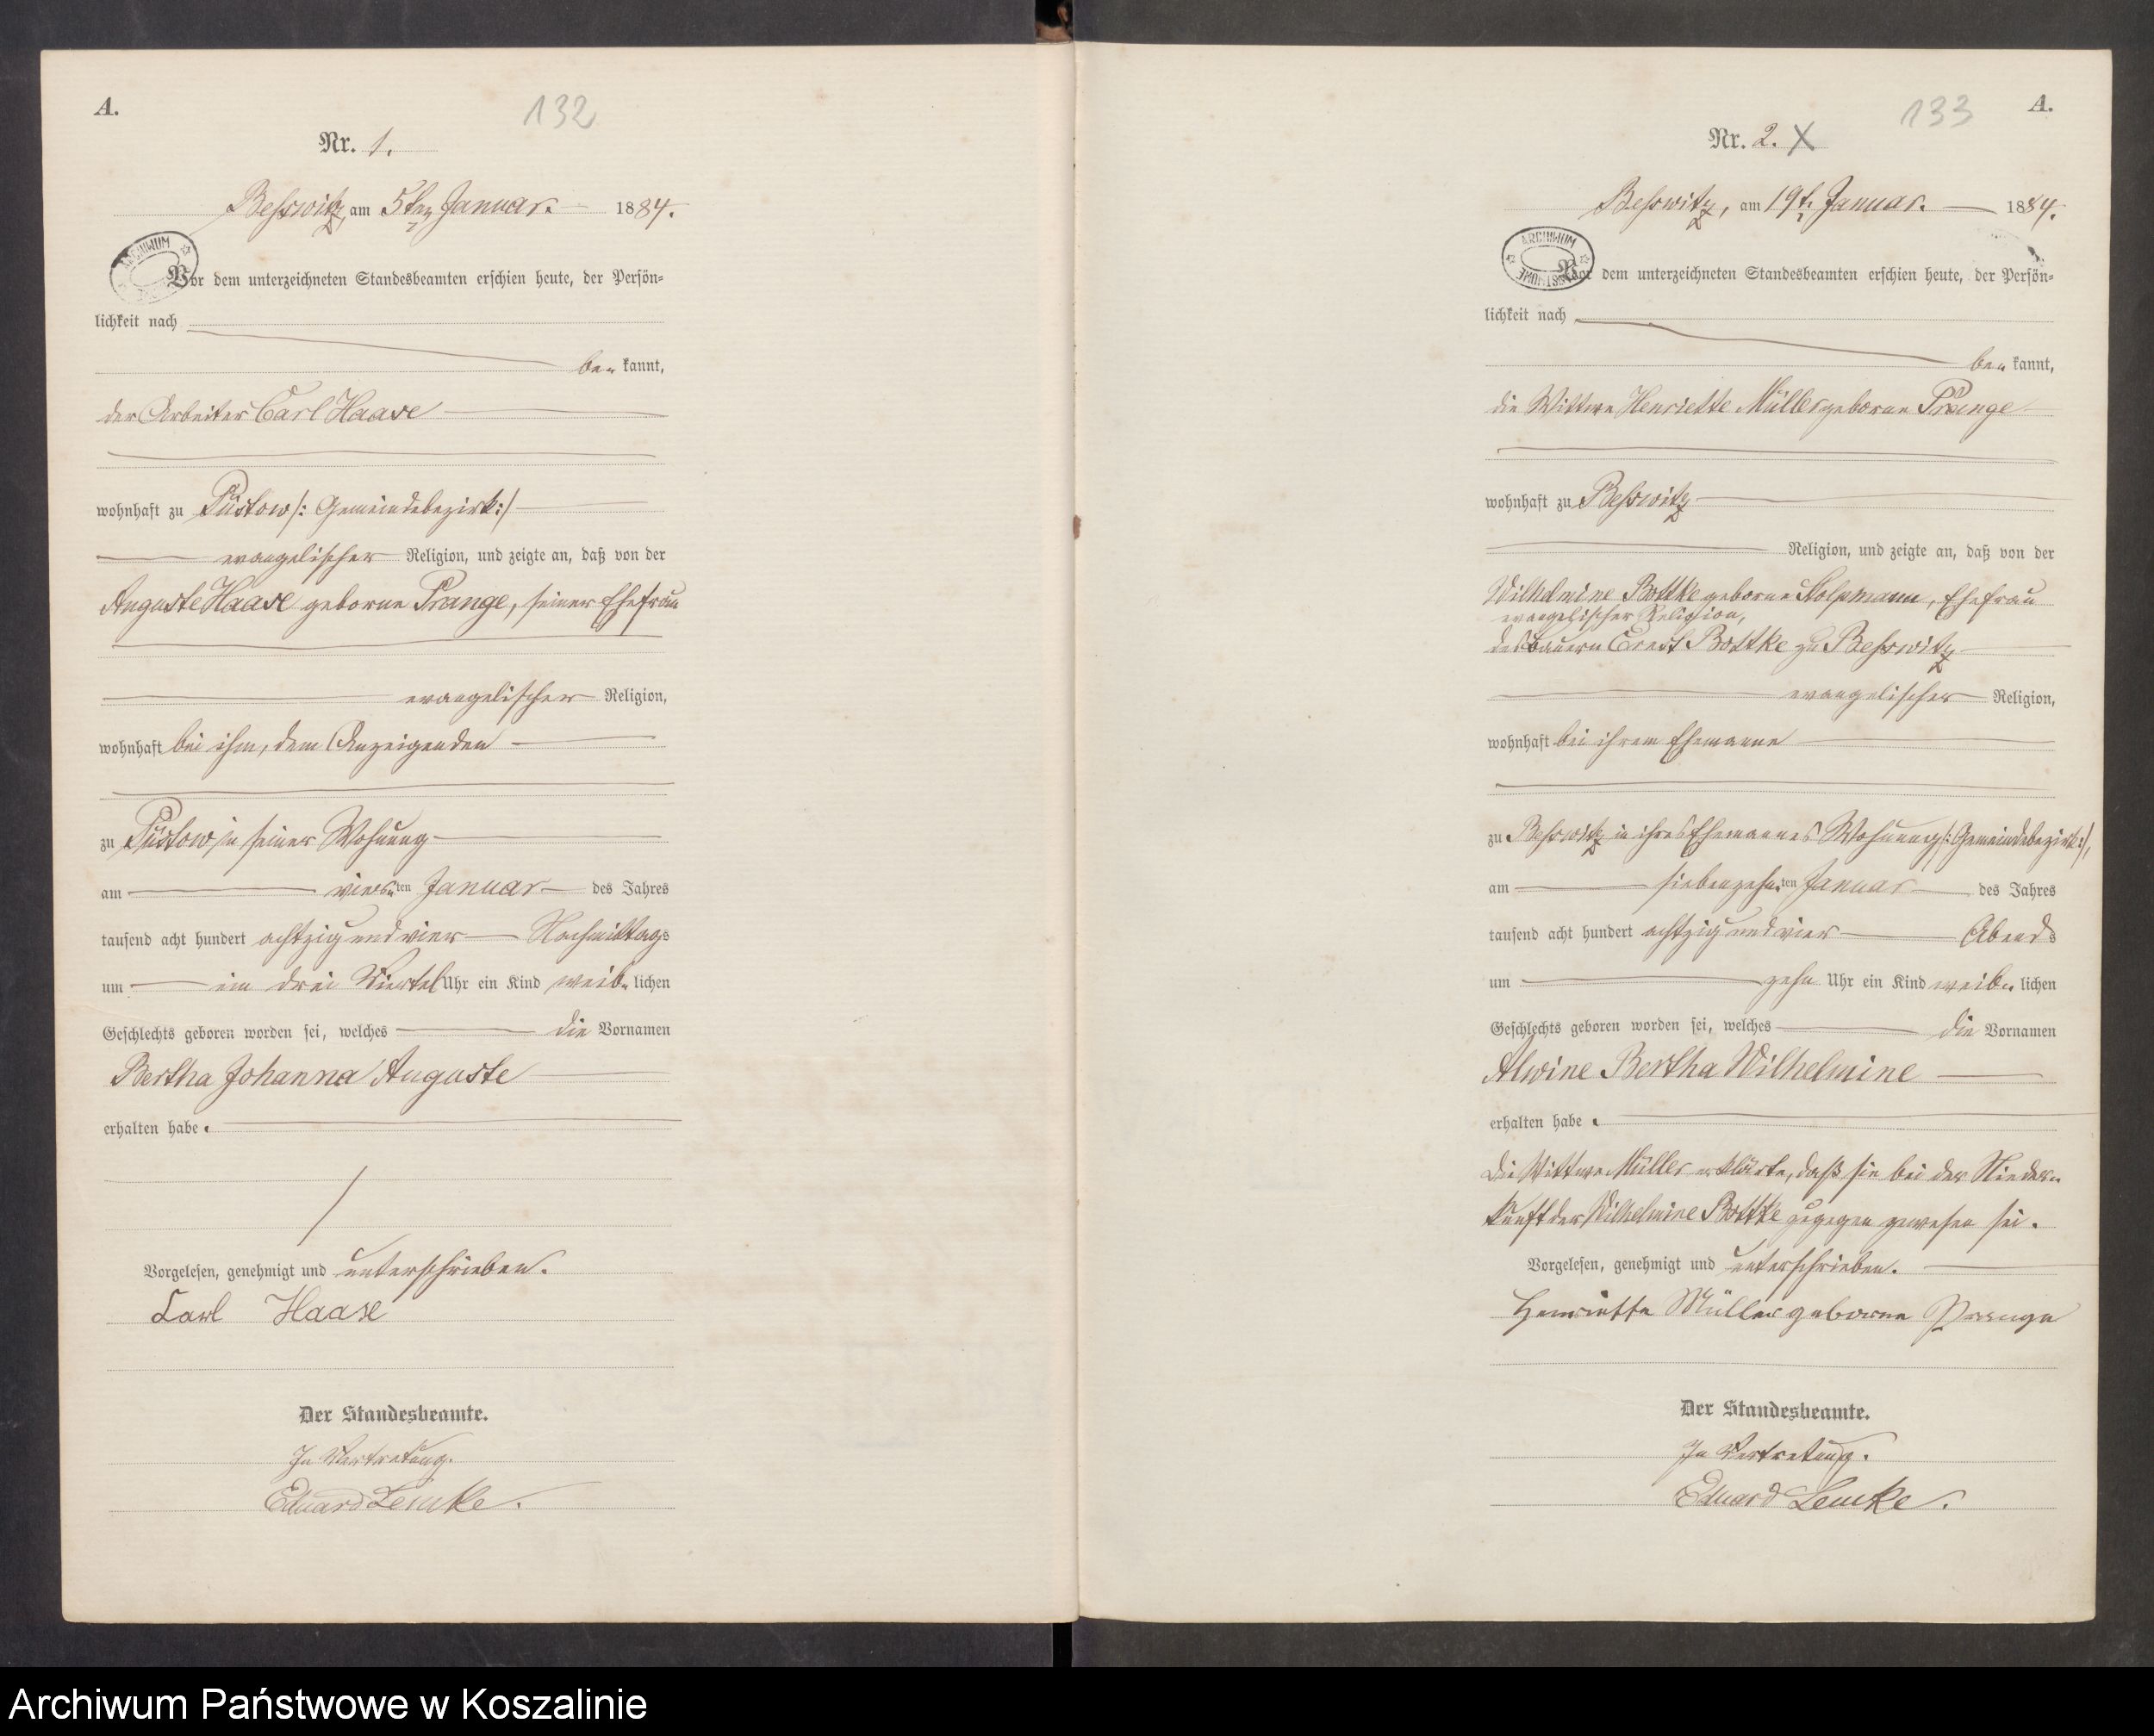 A.
132
Nr. 1.
Beßwitz, am 5ten Januar. 1884.
ARCHIWUM
Vor dem unterzeichneten Standesbeamten erschien heute, der Persön=
lichkeit nach
be= kannt,
der Arbeiter Carl Haase
wohnhaft zu Püstow /: Gemeindebezirk:/
evangelischer Religion, und zeigte an, daß von der
Auguste Haase geborne Prange, seiner Ehefrau
evangelischer Religion,
wohnhaft bei ihm, dem Anzeigenden
zu Püstow in seiner Wohnung
am vier=ten Januar des Jahres
tausend acht hundert achtzig und vier Nachmittags
um ein drei Viertel Uhr ein Kind weib= lichen
Geschlechts geboren worden sei, welches die Vornamen
Bertha Johanna Auguste
erhalten habe.
Vorgelesen, genehmigt und unterschrieben.
Carl Haase
Der Standesbeamte.
In Vertretung.
Eduard Lemke.
133
A.
Nr. 2. X
Beßwitz, am 19t. Januar. 1884.
ARCHIWUM
Vor dem unterzeichneten Standesbeamten erschien heute, der Persön=
lichkeit nach
be= kannt,
die Wittwe Henriette Müller geborne Prange
wohnhaft zu Beßwitz
Religion, und zeigte an, daß von der
Wilhelmine Bottke geborne Stolpmann, Ehefrau
evangelischer Religion,
des Bauern Ernst Bottke zu Beßwitz
evangelischer Religion,
wohnhaft bei ihrem Ehemanne
zu Beßwitz in ihres Ehemannes Wohnung /: Gemeindebezirk:/,
am siebenzehn=ten Januar des Jahres
tausend acht hundert achtzig und vier Abends
um zehn Uhr ein Kind weib= lichen
Geschlechts geboren worden sei, welches die Vornamen
Alwine Bertha Wilhelmine
erhalten habe.
Die Wittwe Müller erklärte, daß sie bei der Nieder=
kunft der Wilhelmine Bottke zugegen gewesen sei.
Vorgelesen, genehmigt und unterschrieben.
Henriette Müller geborne Prange
Der Standesbeamte.
In Vertretung.
Eduard Lemke.
Archiwum Państwowe w Koszalinie